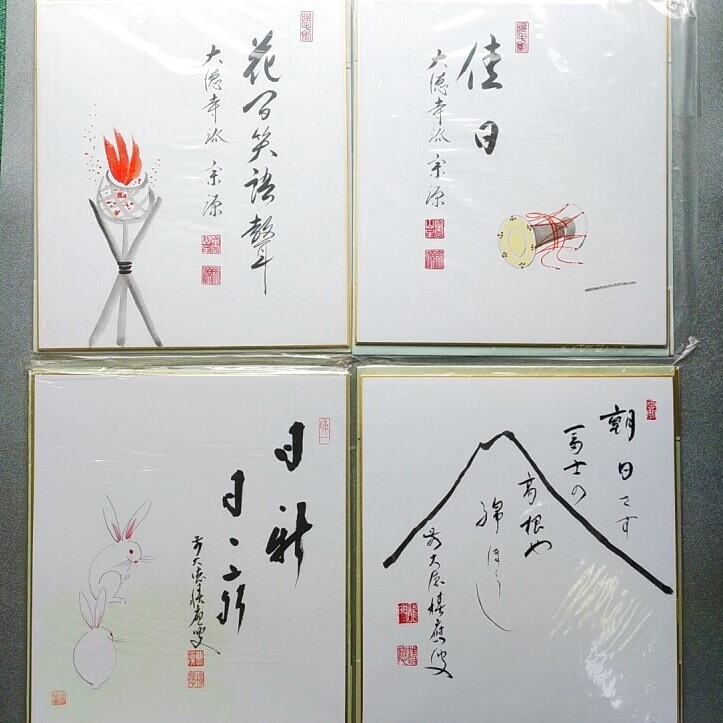 花間笑語聲
大徳寺派 宗源
佳日
大徳寺派 宗源
日新
日々新
前大徳積應叟
朝日さす
富士の
高根や
綿ほうし
前大徳積應叟